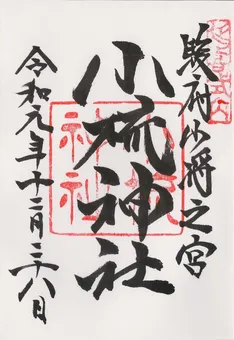 駿府少将之宮
小梳神社
令和元年十二月二十八日